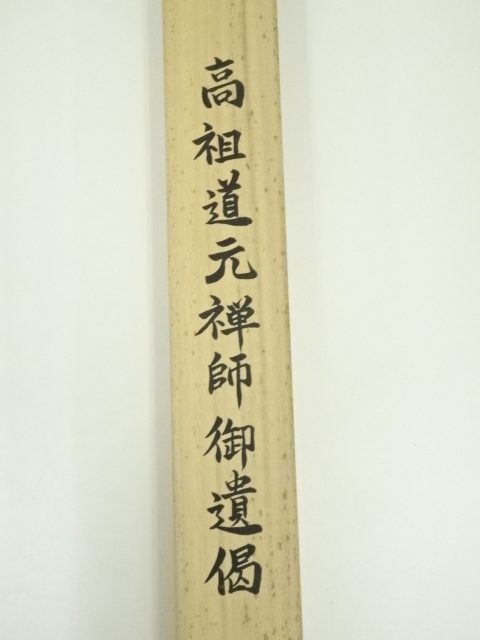 高祖道元禅師御遺偈